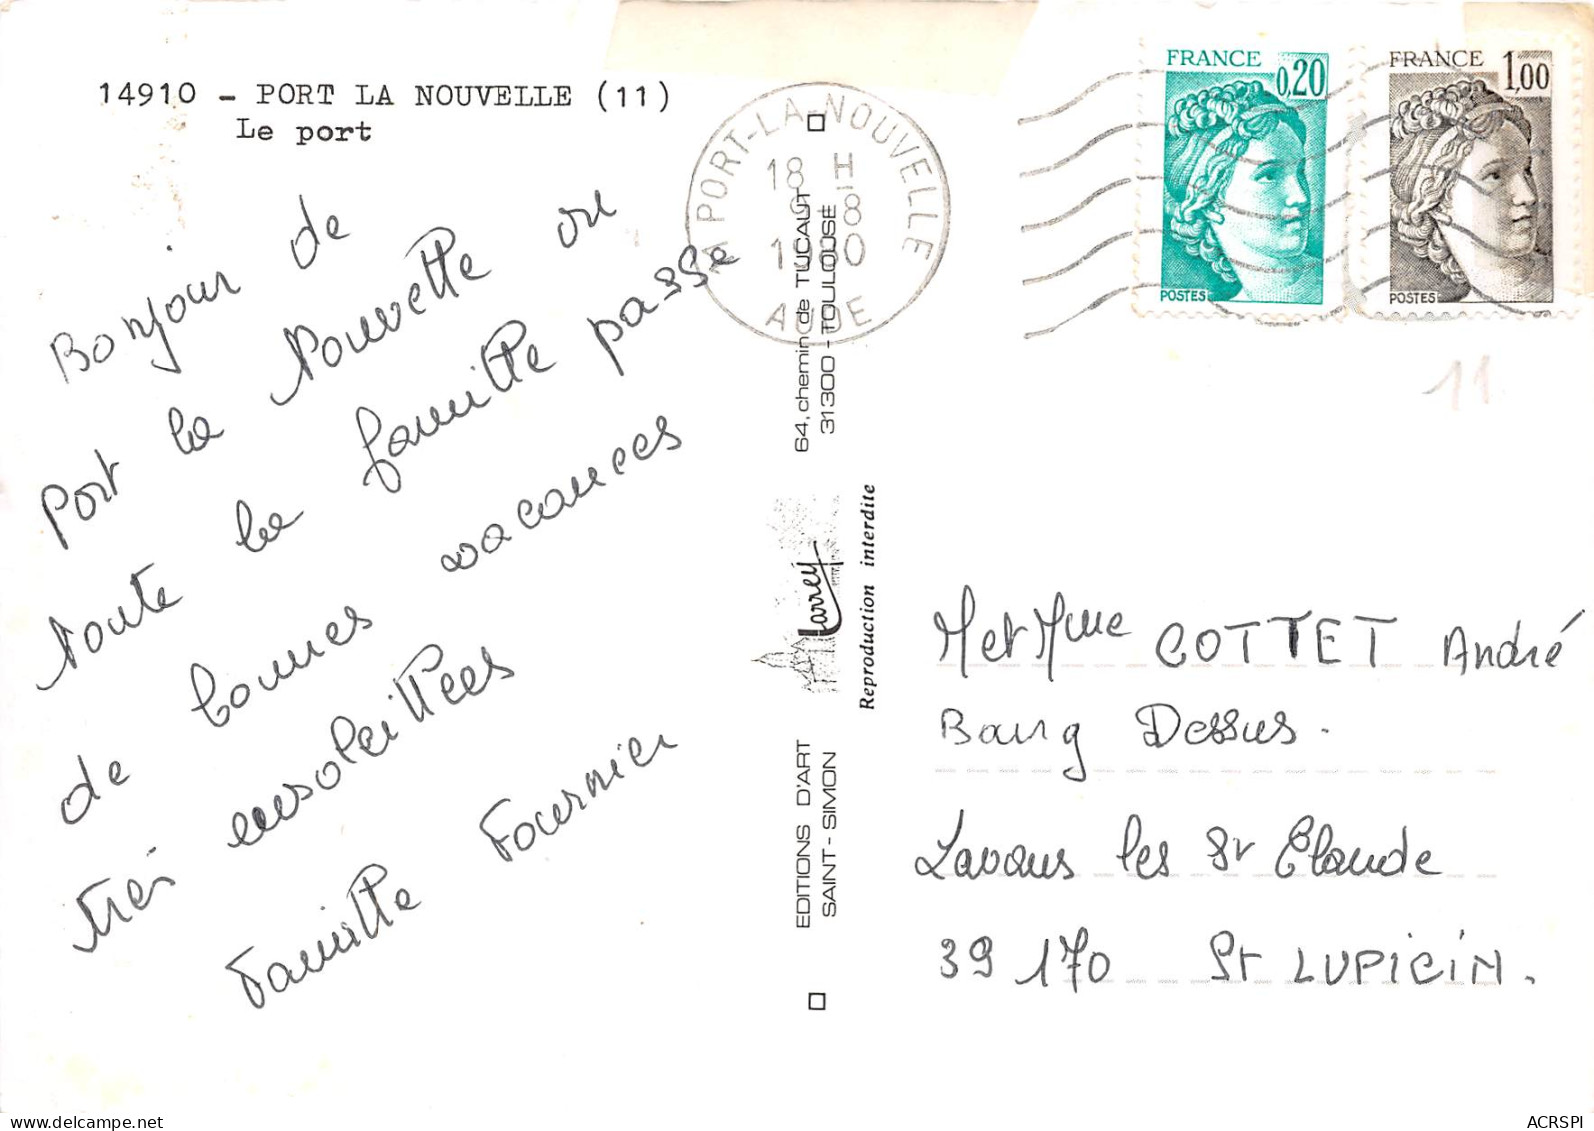 14910 - PORT LA NOUVELLE (11)
Le port
Bonjour de
Port la Nouvelle ou
toute la famille passe
de bonnes vacances
très ensoleillées
Famille Fournier
PORT-LA-NOUVELLE
18 H
8
1980
AUDE
64, chemin de TUCAUT
31300 - TOULOUSE
Larrey
Reproduction interdite
EDITIONS D'ART
SAINT-SIMON
FRANCE 0,20
POSTES
FRANCE 1,00
POSTES
11
M et Mme COTTET André
Bourg Dessus.
Lavans les St Claude
39 170 St LUPICIN.
ACRSPI